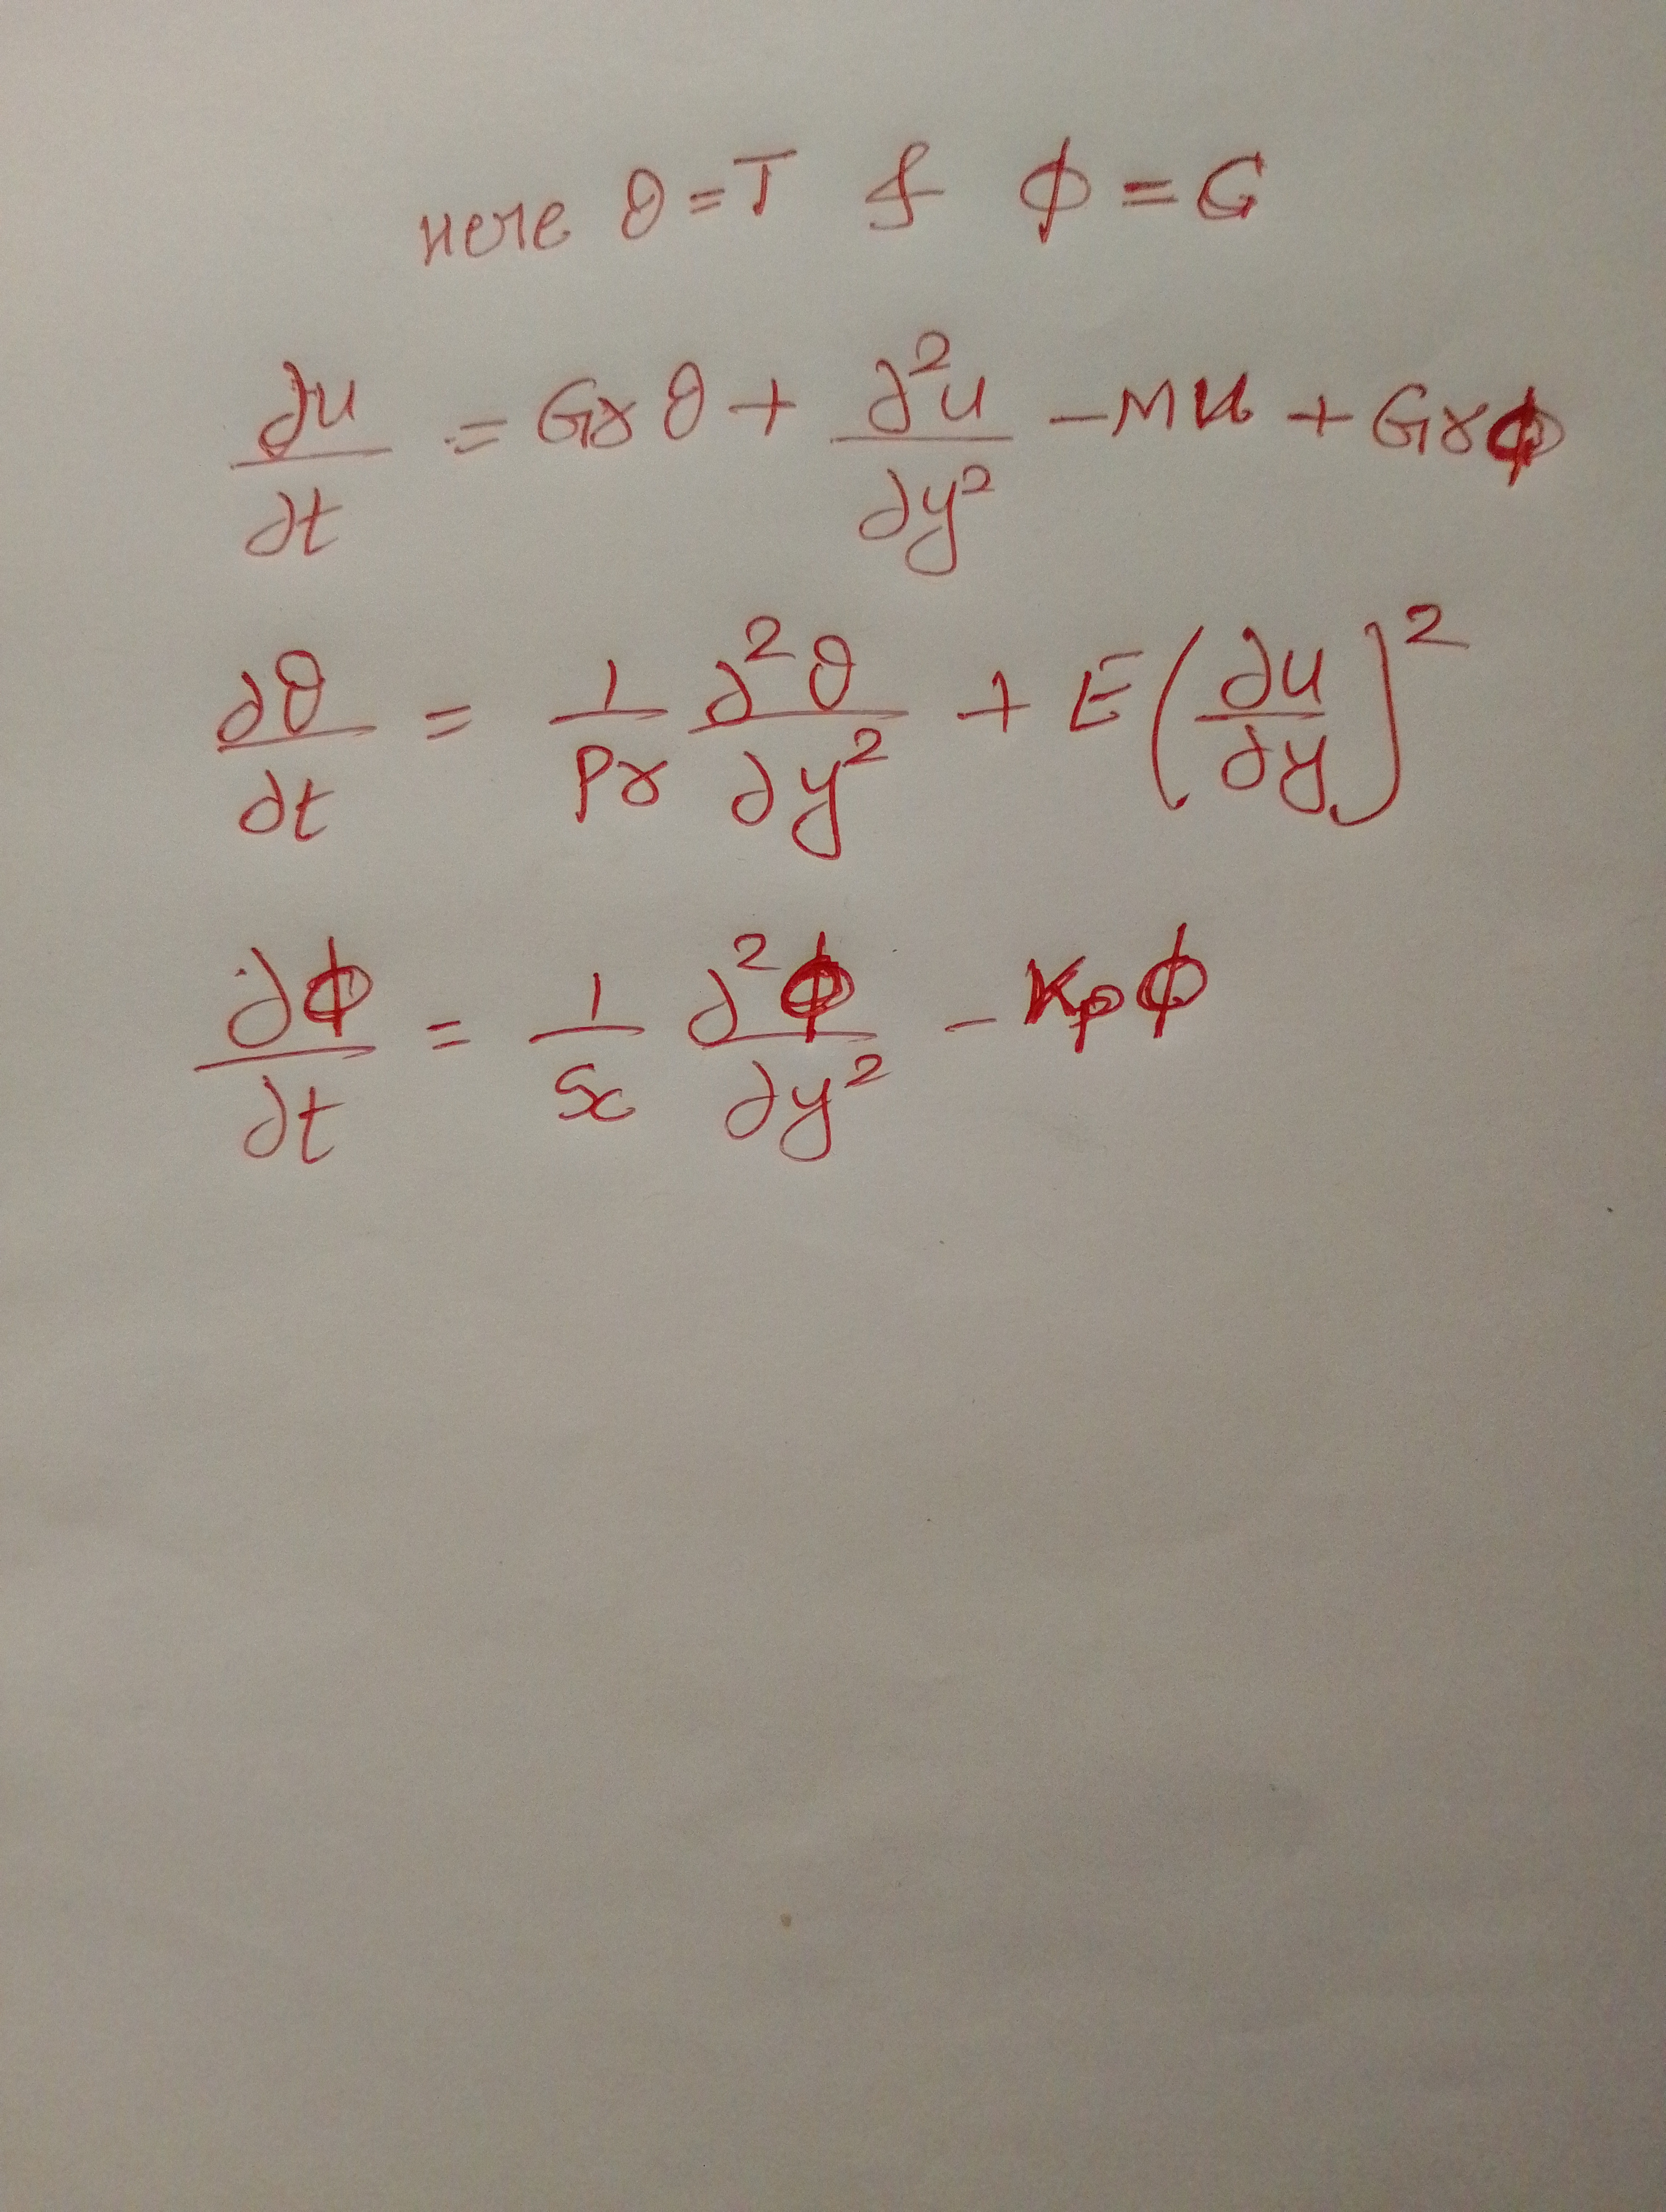 Here θ = T & ϕ = G
∂u/∂t = Gr θ + ∂²u/∂y² - Mu + Gr ϕ
∂θ/∂t = 1/Pr ∂²θ/∂y² + E(∂u/∂y)²
∂ϕ/∂t = 1/Sc ∂²ϕ/∂y² - Kp ϕ